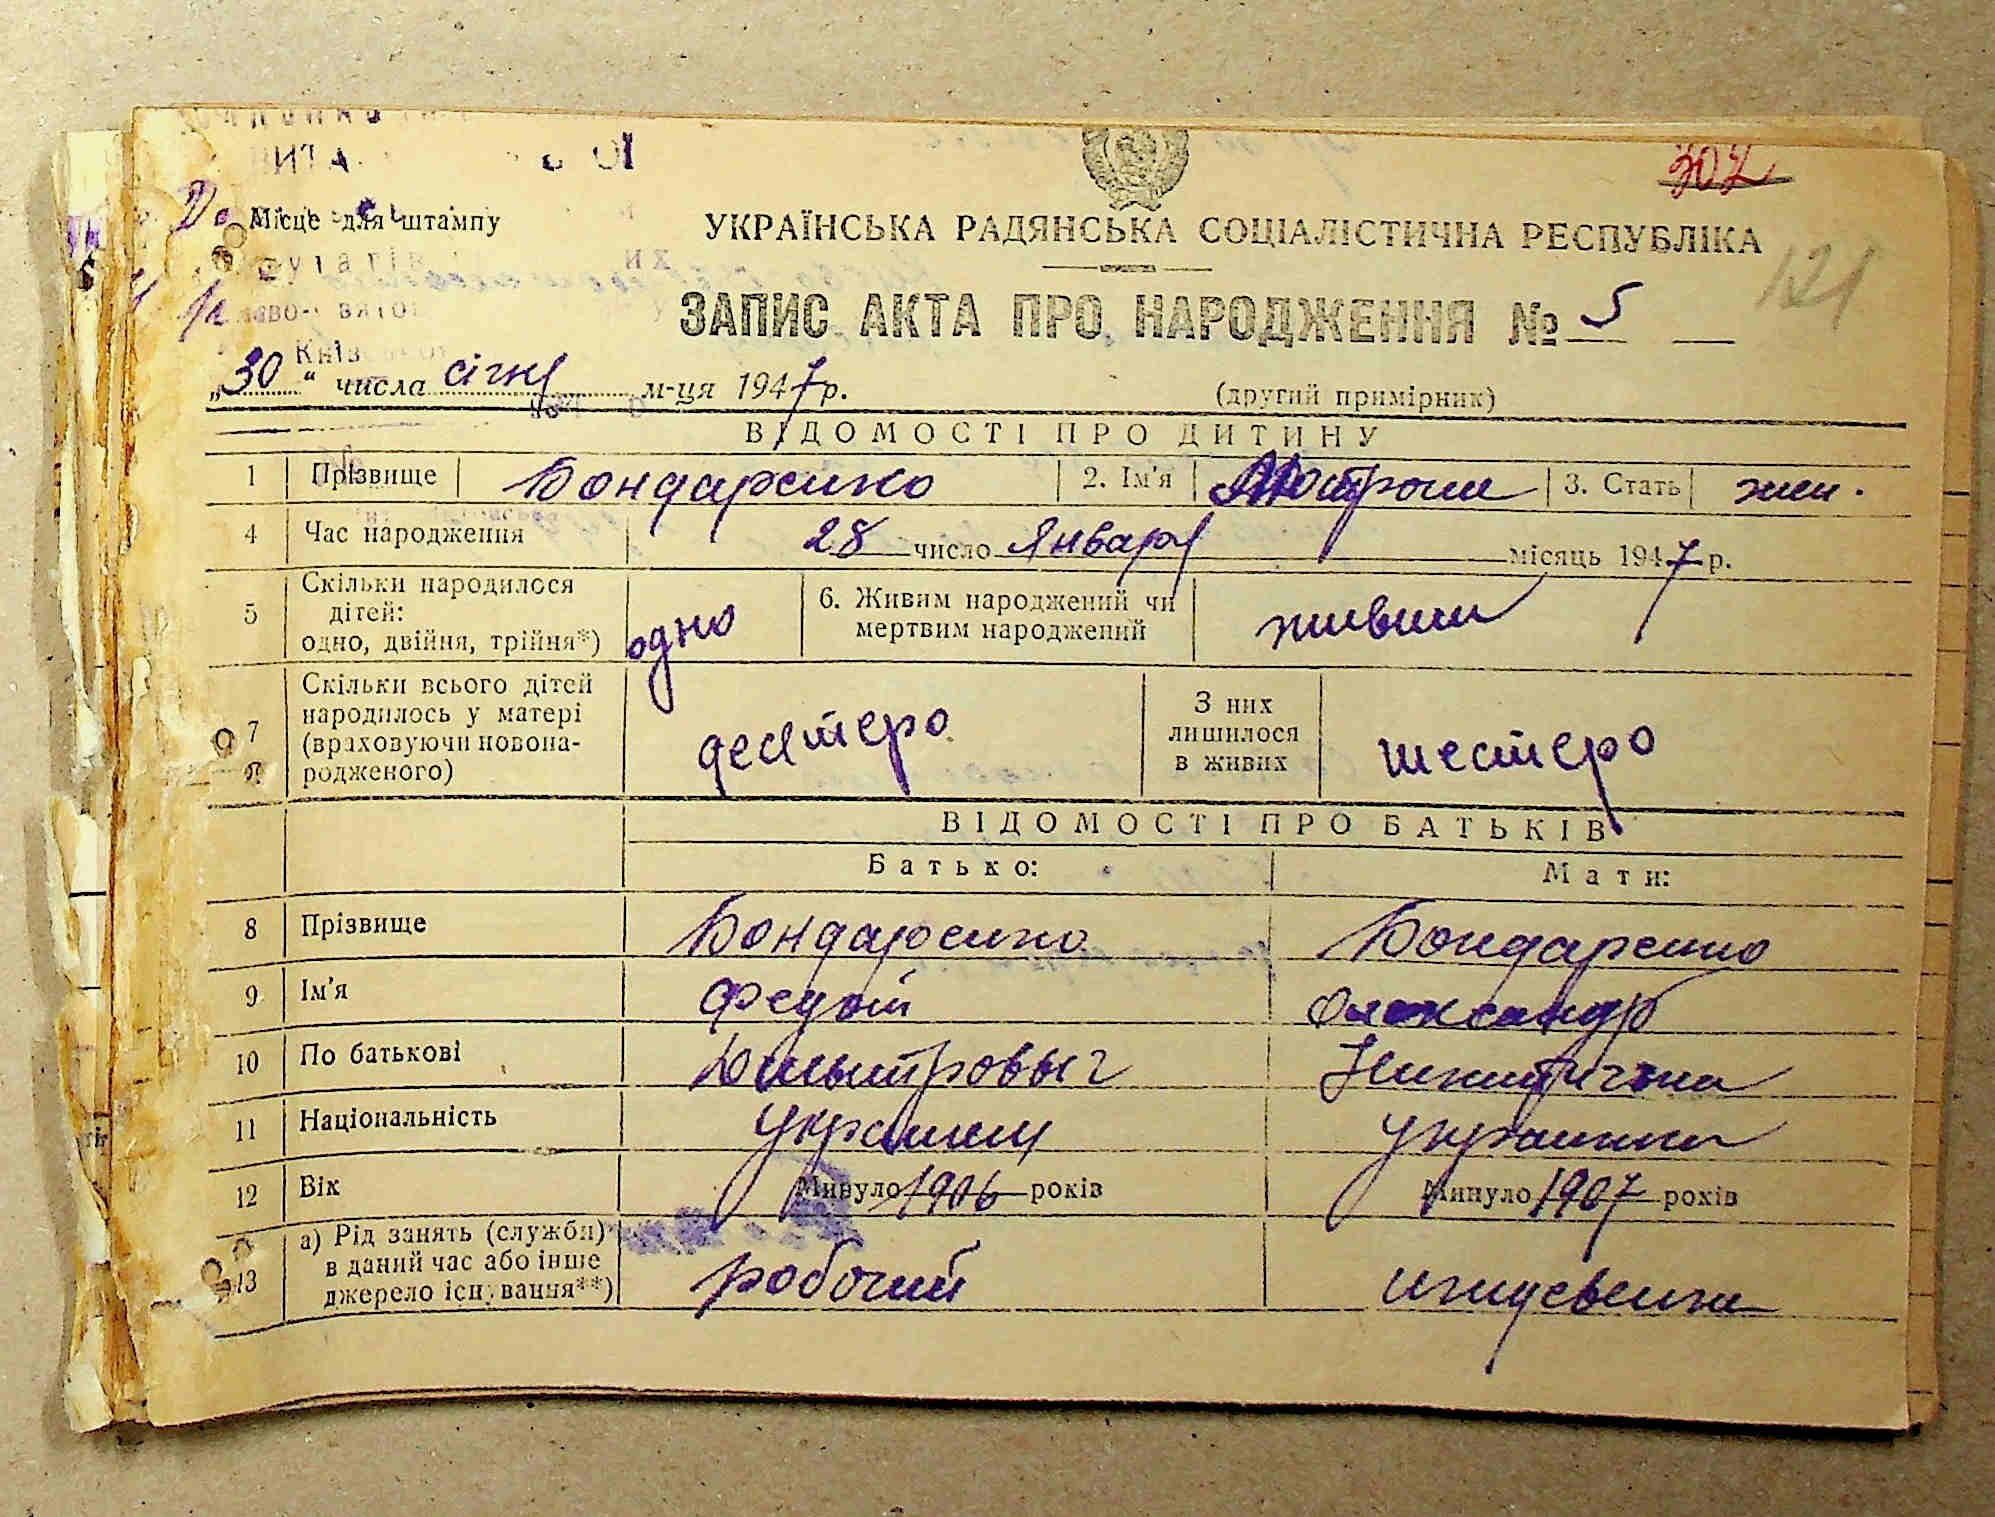 302
Місце для штампу
УКРАЇНСЬКА РАДЯНСЬКА СОЦІАЛІСТИЧНА РЕСПУБЛІКА
121
ЗАПИС АКТА ПРО НАРОДЖЕННЯ № 5
„30" числа січня м-ця 1947 р.
(другий примірник)
ВІДОМОСТІ ПРО ДИТИНУ
1 Прізвище Бондаренко 2. Ім'я 3. Стать жен.
4 Час народження 28 число Января місяць 1947 р.
5 Скільки народилося
дітей:
одно, двійня, трійня*) одно 6. Живим народжений чи
мертвим народжений живим
7 Скільки всього дітей
народилось у матері
(враховуючи новона-
родженого) десятеро З них
лишилося
в живих шестеро
ВІДОМОСТІ ПРО БАТЬКІВ
Батько: Мати:
8 Прізвище Бондаренко Бондаренко
9 Ім'я Федот Олександр
10 По батькові Дмытровыч Никитична
11 Національність Украинец Украинка
12 Вік Минуло 1906 років Минуло 1907 років
13 а) Рід занять (служби)
в даний час або інше
джерело існування**) робочий иждевенка